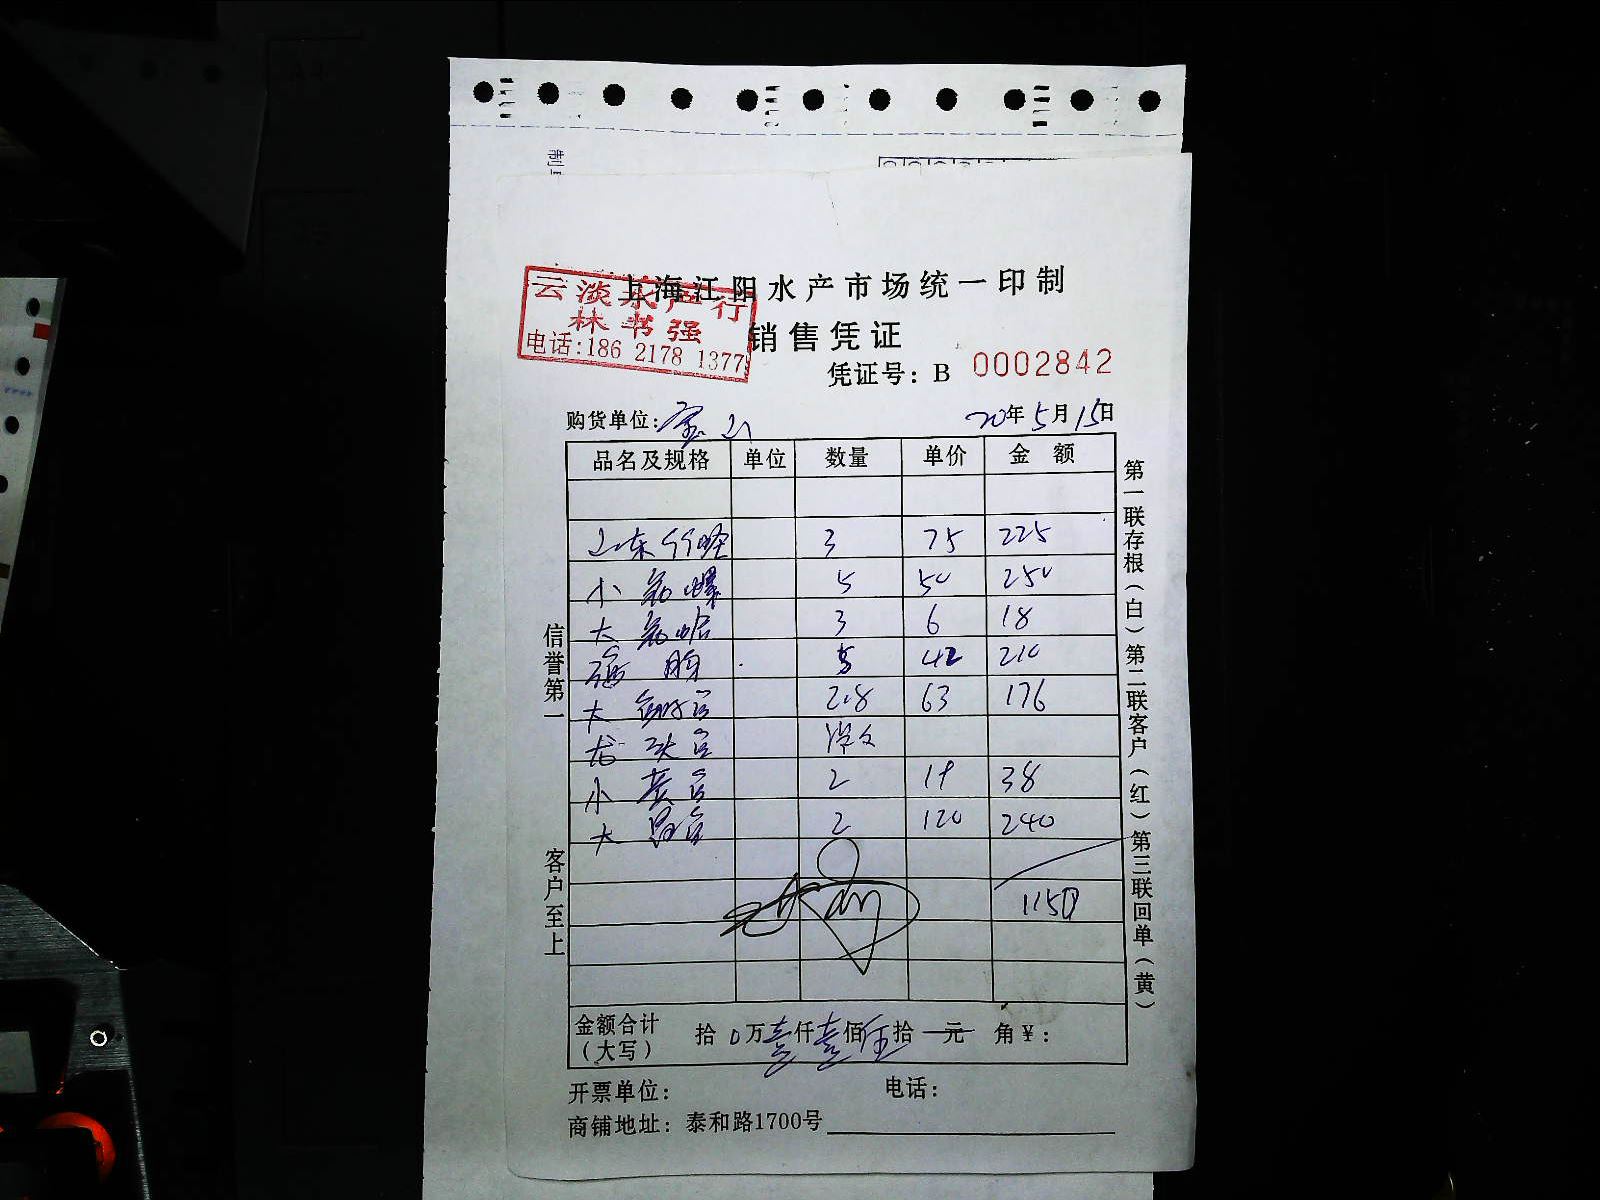 上海江阳水产市场统一印制
云淡水产行
林书强
电话:186 2178 1377
销售凭证
凭证号: B 0002842
购货单位: 宝山 20年5月15日
品名及规格 单位 数量 单价 金额
山东竹蛏 3 75 225
小 螺 5 50 250
大 3 6 18
5 42 210
大 2.8 63 176
龙头
小 2 19 38
大 2 120 240
1150
金额合计(大写) 拾0万壹仟壹佰伍拾一元 角¥:
开票单位: 电话:
商铺地址: 泰和路1700号
信誉第一 客户至上
第一联存根(白)第二联客户(红)第三联回单(黄)